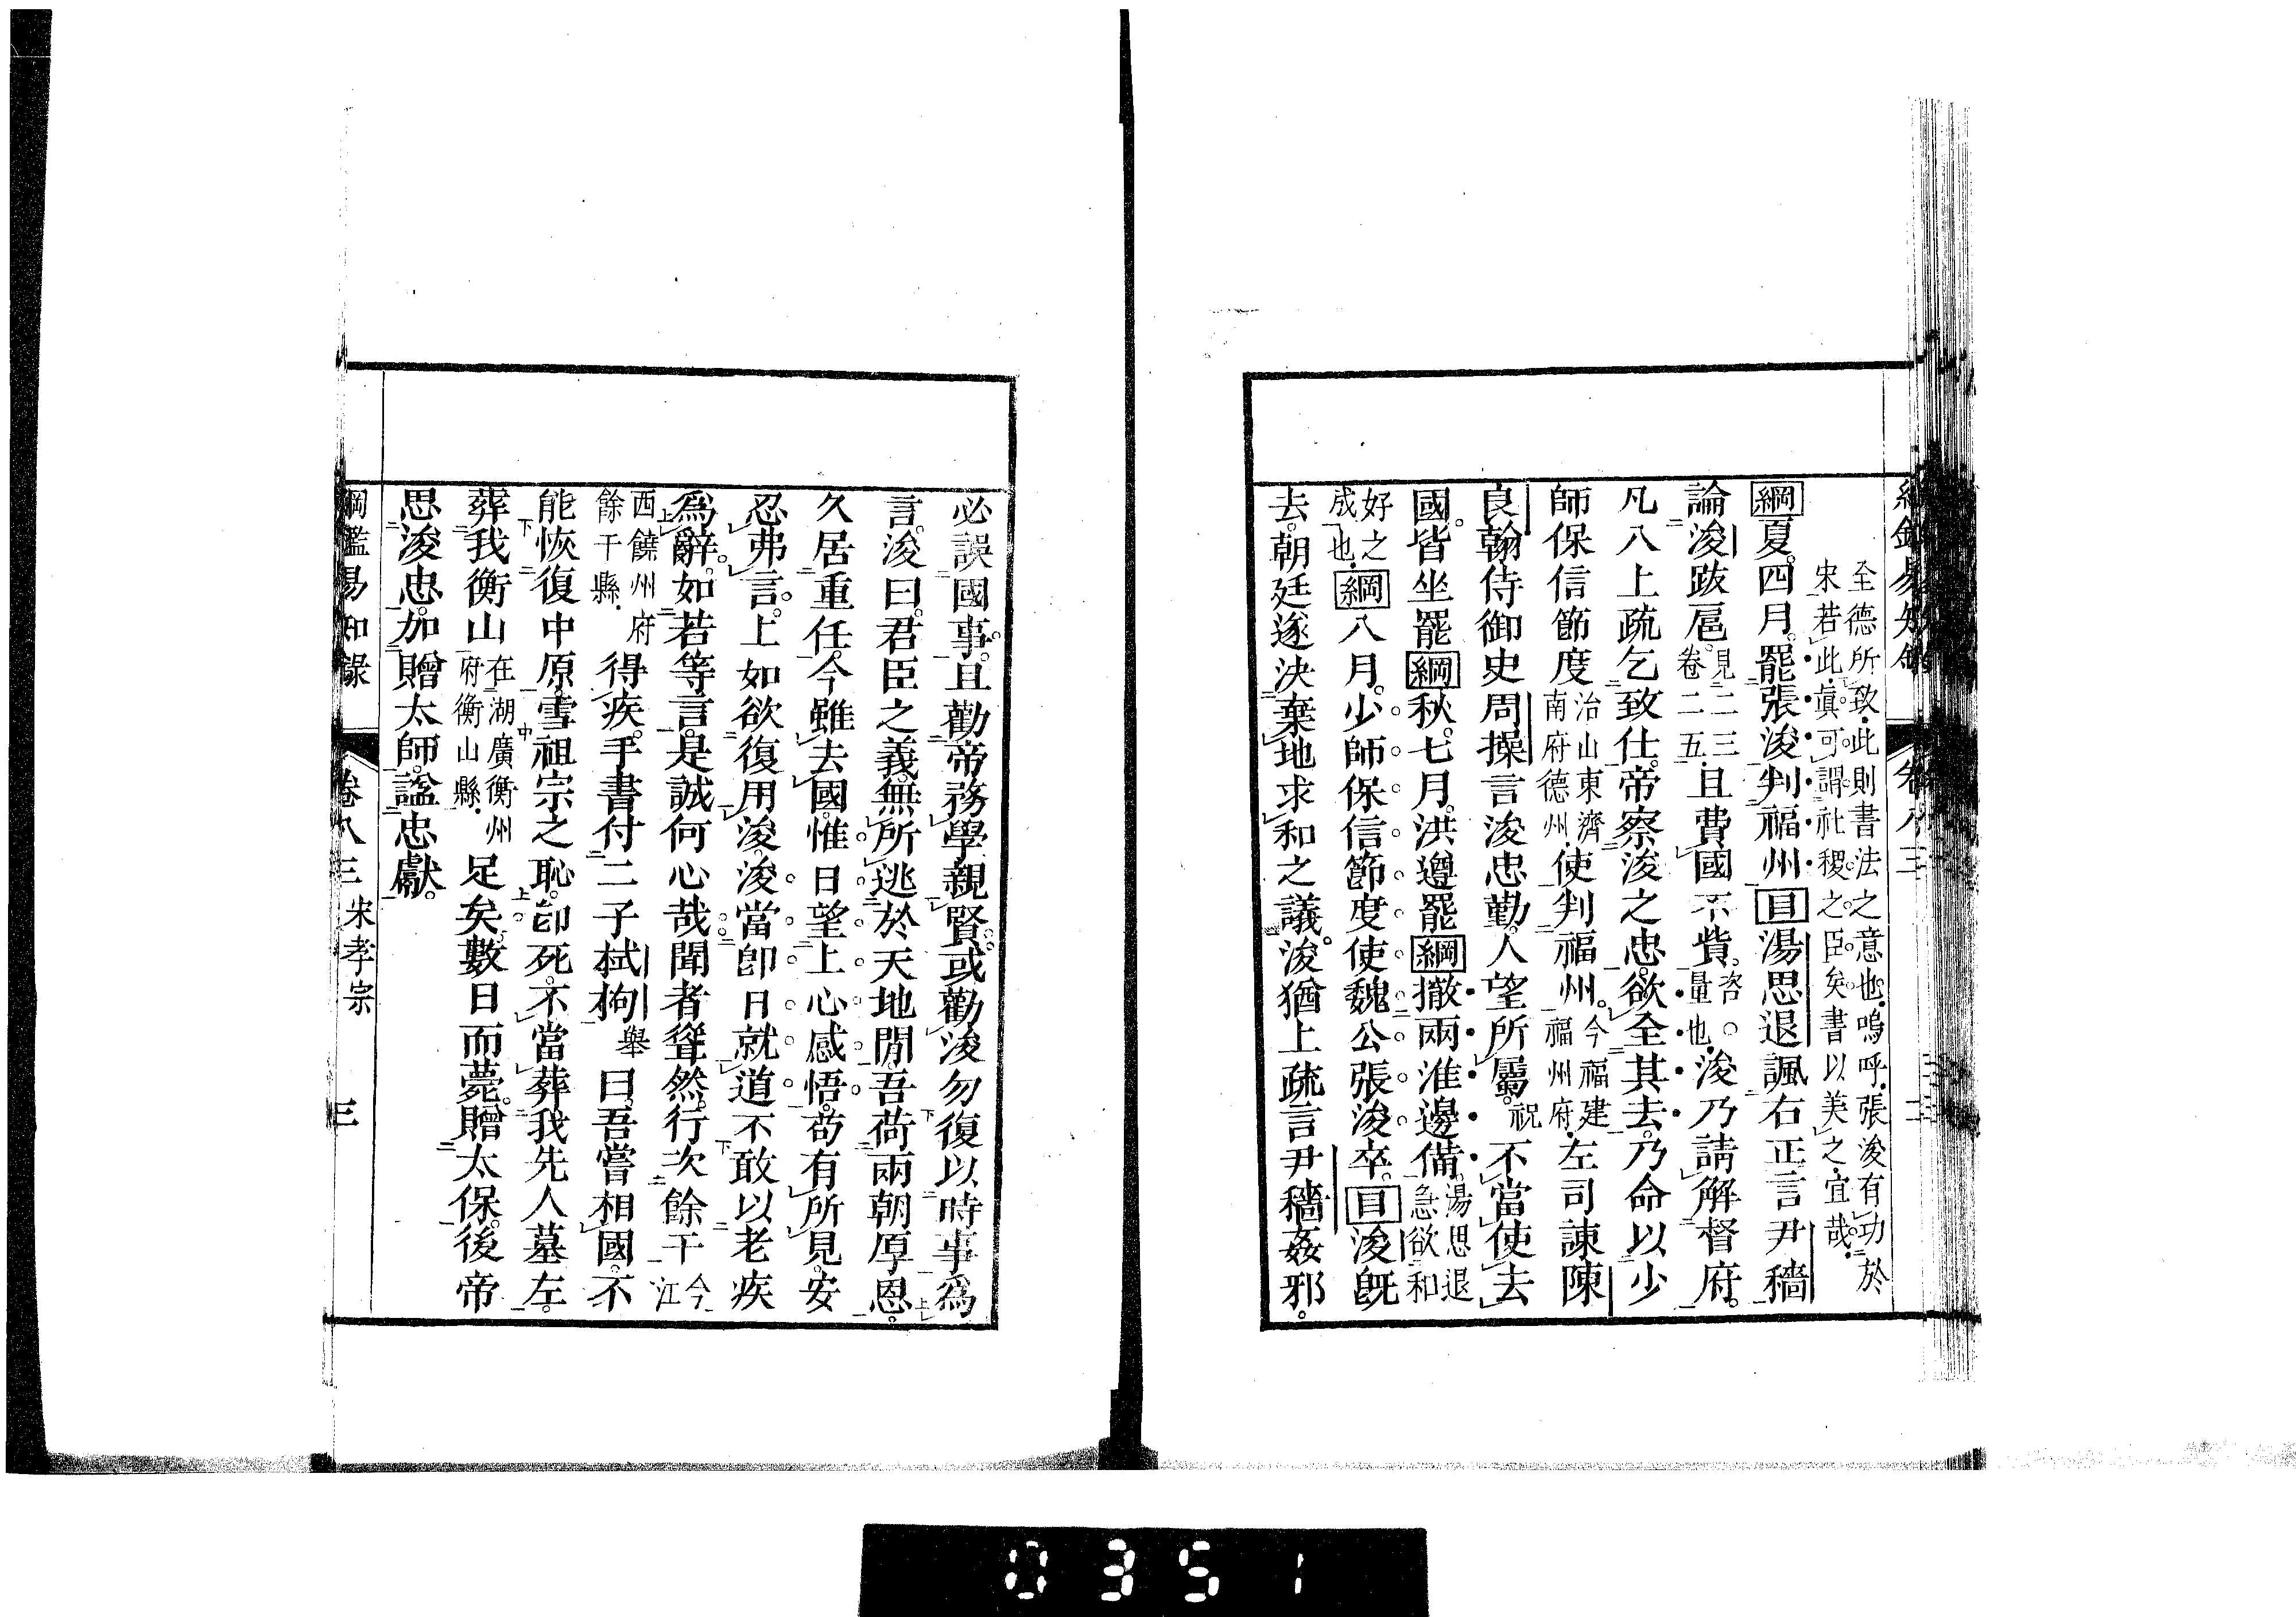 全德所致此則書法之意也嗚呼張浚有功於
宋若此眞可謂社稷之臣矣書以美之宜哉
綱夏四月罷張浚判福州目湯思退諷右正言尹穡
論浚跋扈見二三卷二五且費國不貲咨量也浚乃請解督府
凡八上疏乞致仕帝察浚之忠欲全其去乃命以少
師保信節度治山東濟南府德州使判福州今福建福州府左司諫陳
良翰侍御史周操言浚忠勤人望所屬祝不當使去
國皆坐罷綱秋七月洪遵罷綱撤兩淮邊備湯思退急欲和
好之成也綱八月少師保信節度使魏公張浚卒目浚旣
去朝廷遂決棄地求和之議浚猶上疏言尹穡姦邪
必誤國事且勸帝務學親賢或勸浚勿復以時事爲
言浚曰君臣之義無所逃於天地閒吾荷兩朝厚恩
久居重任今雖去國惟日望上心感悟苟有所見安
忍弗言上如欲復用浚浚當卽日就道不敢以老疾
爲辭如若等言是誠何心哉聞者聳然行次餘干今江
西饒州府餘干縣得疾手書付二子栻枸舉曰吾嘗相國不
能恢復中原雪祖宗之恥卽死不當葬我先人墓左
葬我衡山在湖廣衡州府衡山縣足矣數日而薨贈太保後帝
思浚忠加贈太師諡忠獻
綱鑑易知錄 卷八三 宋孝宗 三
0351